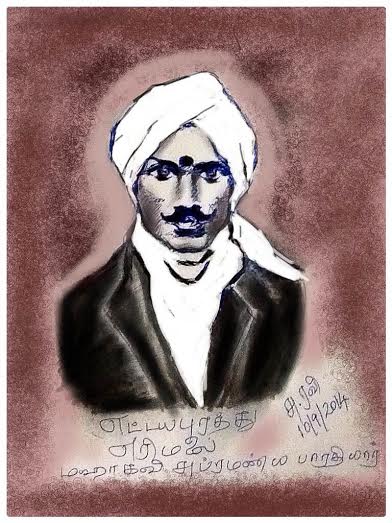 எட்டயபுரத்து
எரிமலை
மஹாகவி சுப்ரமண்ய பாரதியார்
சு.ரவி
10/9/2014